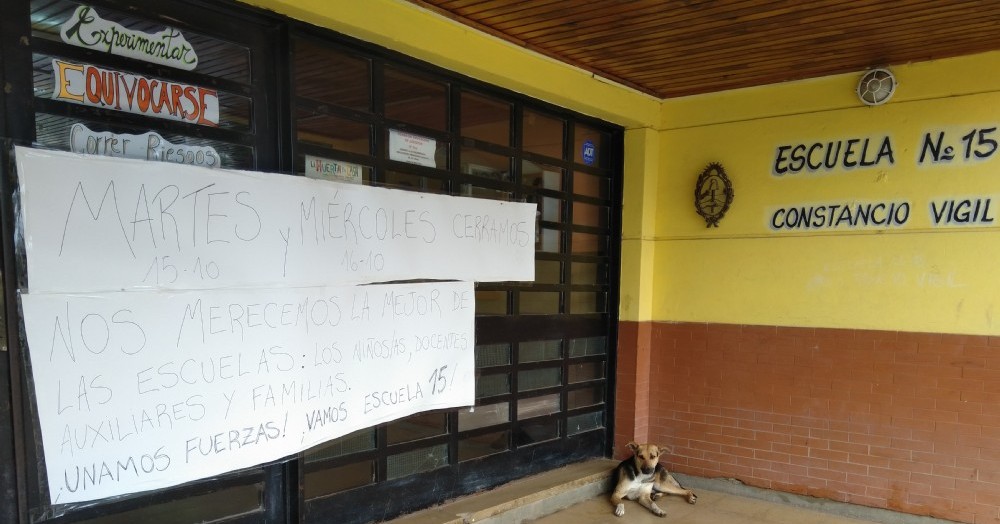 Experimentar
EQUIVOCARSE
Correr Riesgos
MARTES y MIÉRCOLES CERRAMOS
15-10 16-10
NOS MERECEMOS LA MEJOR DE
LAS ESCUELAS: LOS NIÑOS/AS, DOCENTES
AUXILIARES Y FAMILIAS.
¡UNAMOS FUERZAS! ¡VAMOS ESCUELA 15!
ADT
ESCUELA No 15
CONSTANCIO VIGIL